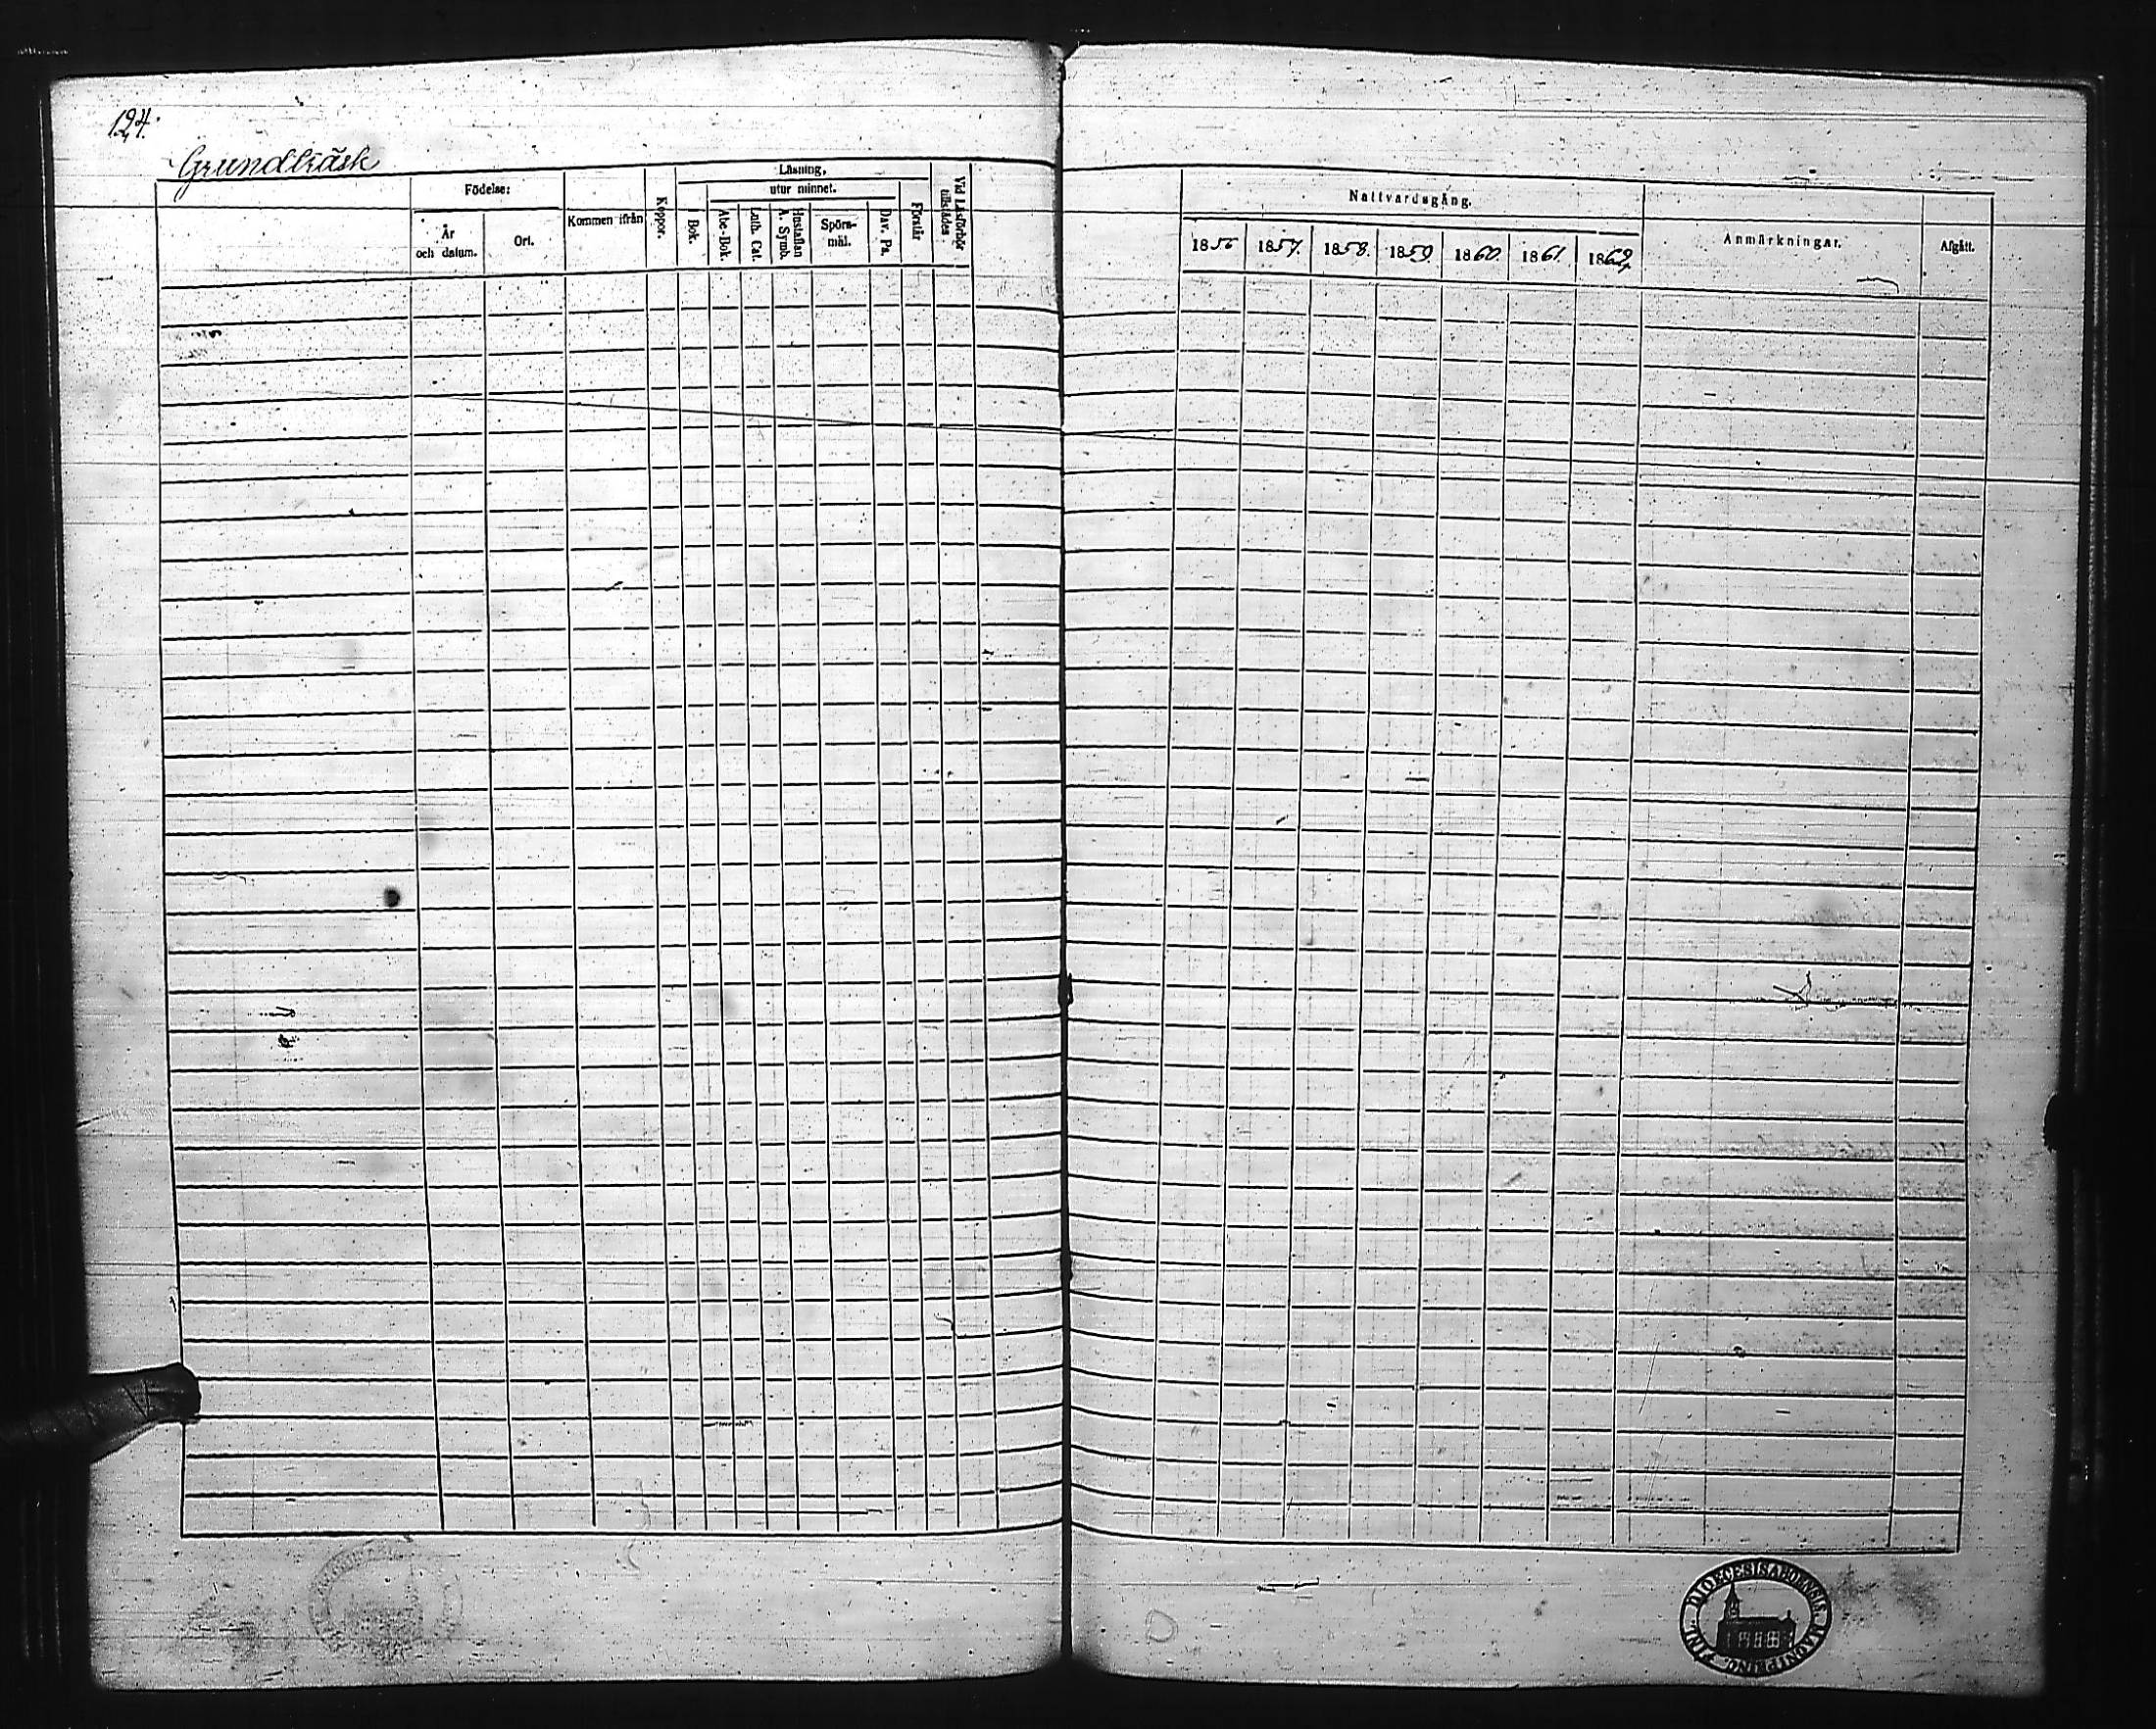 124.
Grundträsk
Födelse:
År
och datum.
Ort.
Kommen ifrån
Koppor.
Läsning,
utur minnet.
I Bok.
Abc-Bok.
Luth. Cat.
Hustaflan
A. Symb.
Spörs-
mål.
Dav. Ps.
Förstår
Vid Läsförhör
tillstädes
Nattvardsgång.
1856 1857. 1858. 1859. 1860. 1861. 1862.
Anmärkningar.
Afgått.